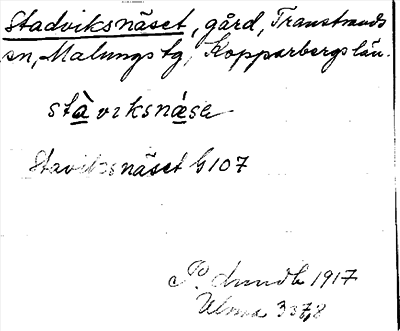 Stadviksnäset, gård, Transtrands
sn, Malungs tg, Kopparbergs län.
stàviksnǽse
Staviksnäset G107
P. Lundh 1917
Ulma 337,8